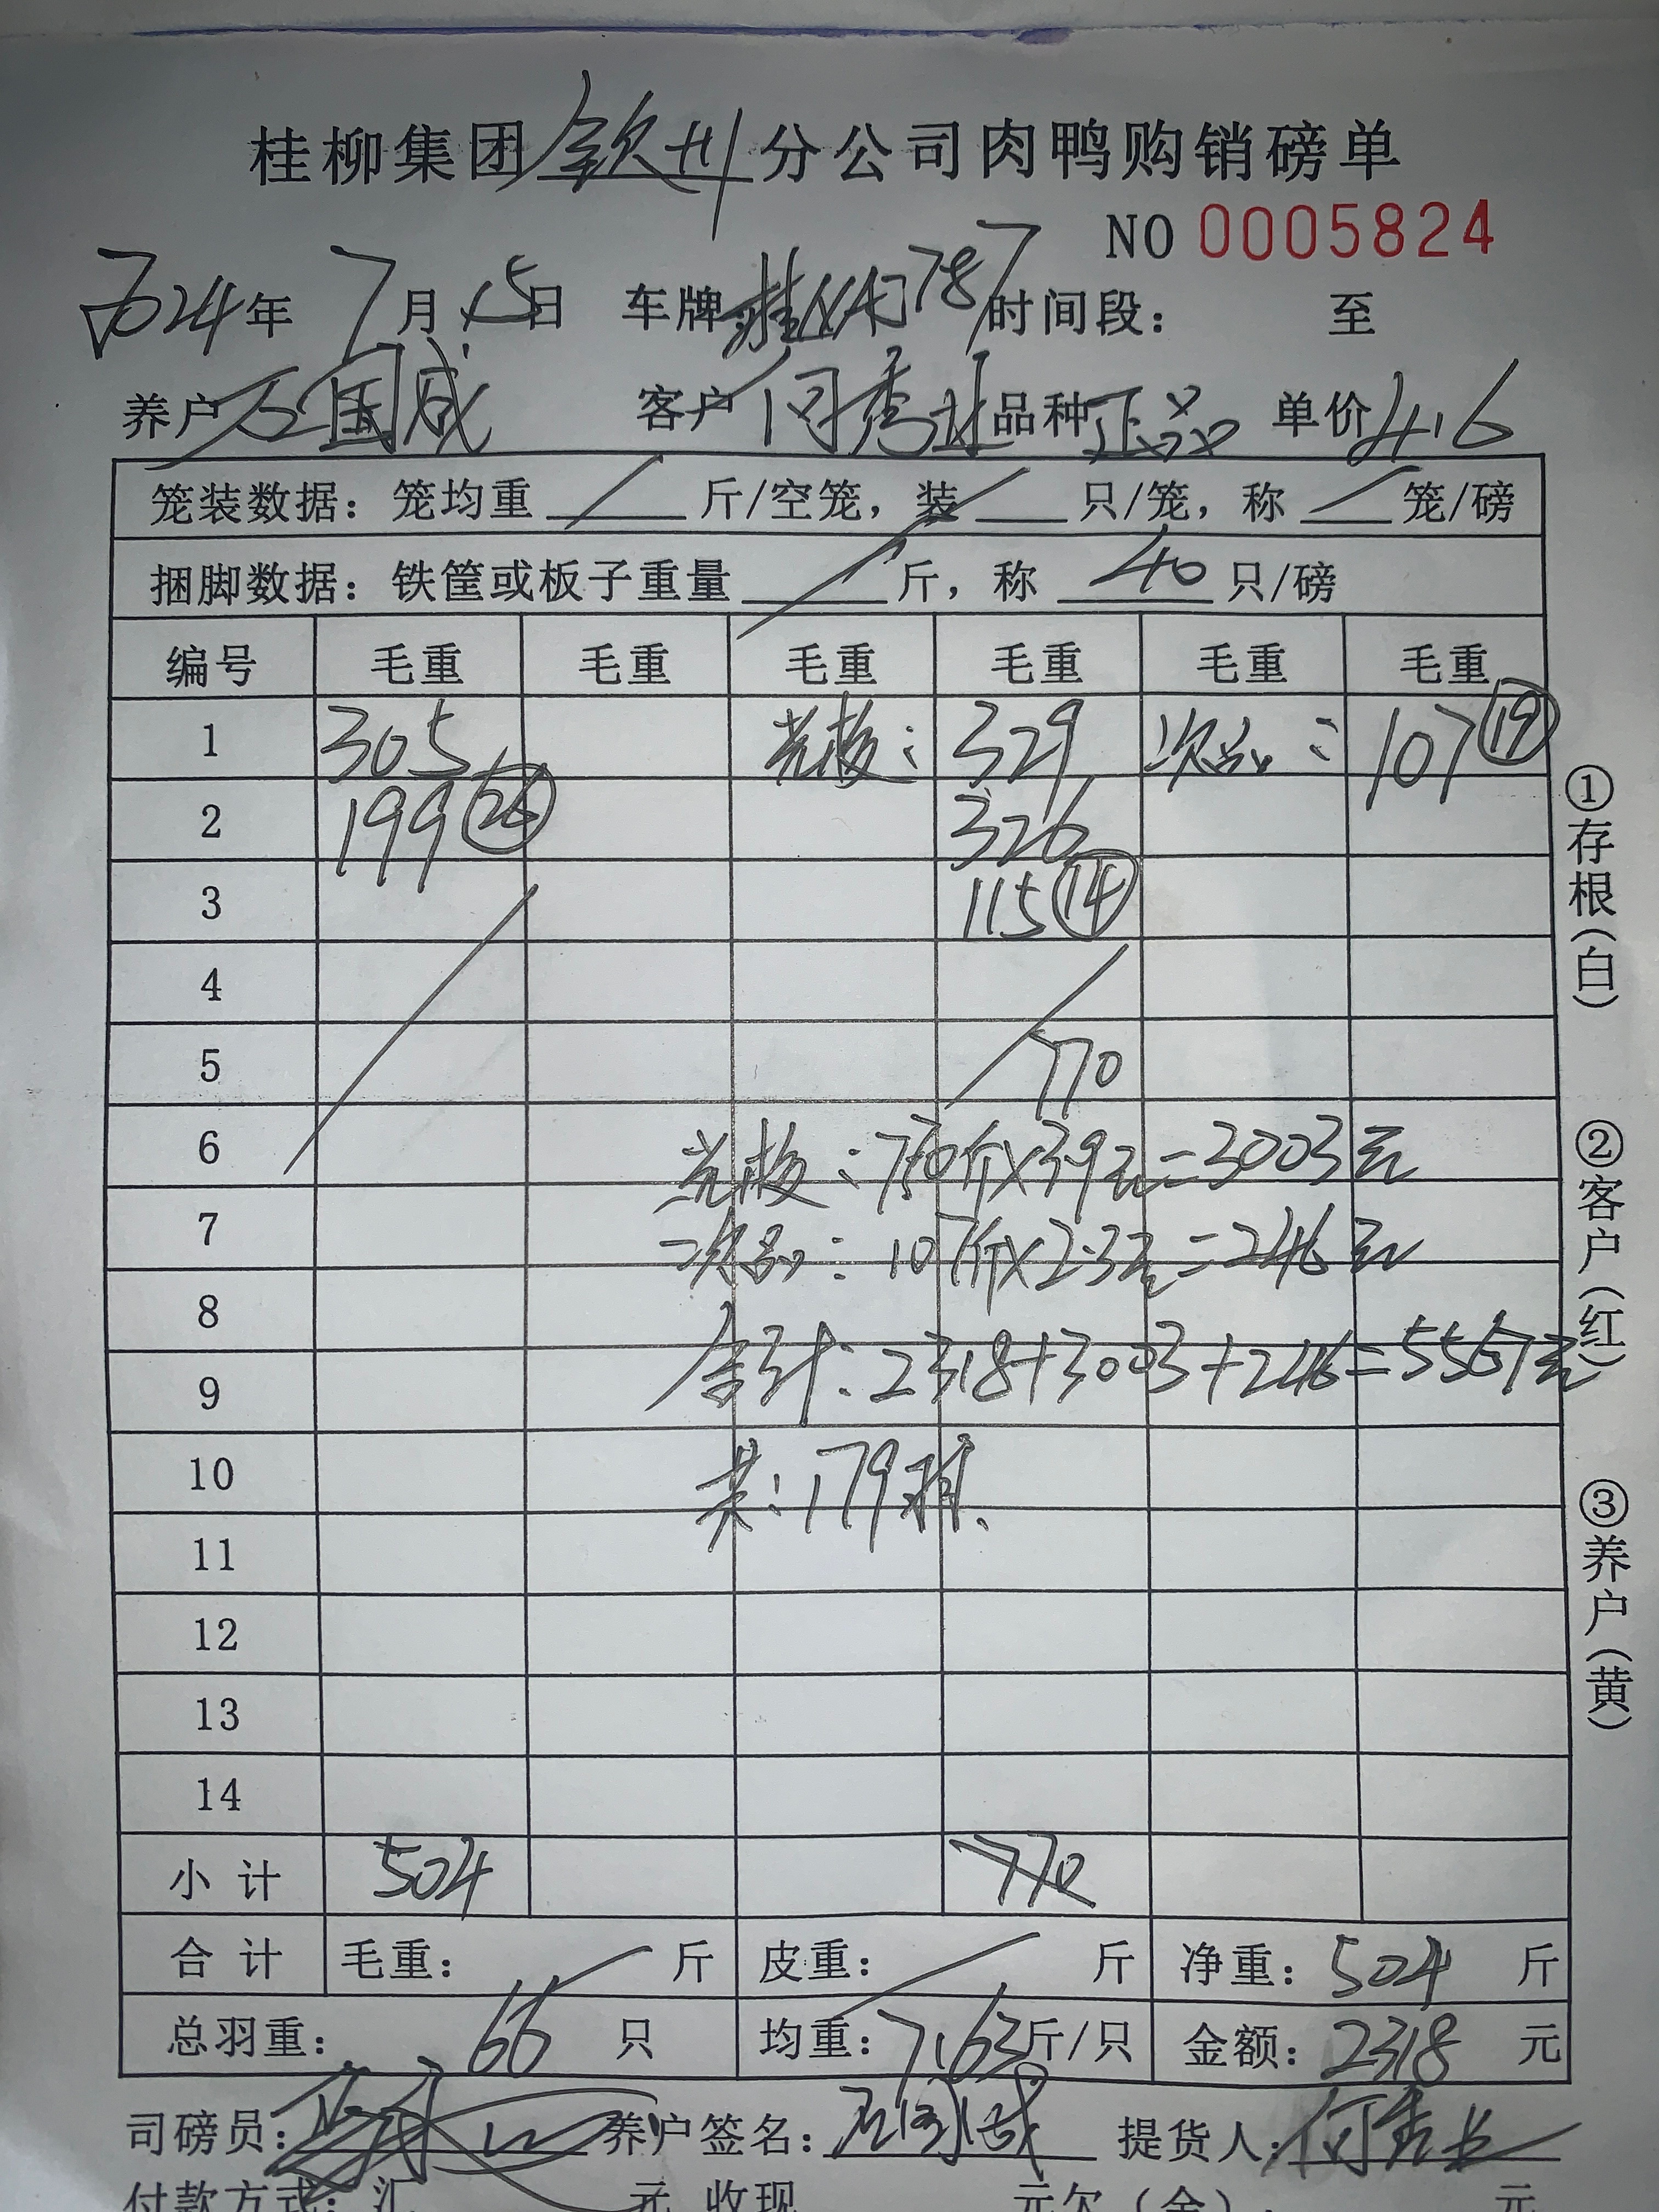 桂柳集团钦州分公司肉鸭购销磅单
NO 0005824
2024年 7月15日 车牌 时间段： 至
养户 国成 客户 何秀 品种 正品 单价 4.6
笼装数据：笼均重 斤/空笼，装 只/笼，称 笼/磅
捆脚数据：铁筐或板子重量 斤，称 40 只/磅
编号 毛重 毛重 毛重 毛重 毛重 毛重
1 305 329 次品： 107 ⑲
2 199 26 326
3 115 ⑭
4
5 770
6 770斤×3.9元=3003元
7 次品：107斤×2.3元=246元
8
9 合计：2318+3003+246=5567元
10 共：179羽
11
12
13
14
小计 504 770
合计 毛重： 斤 皮重： 斤 净重：504 斤
总羽重： 66 只 均重：7.63斤/只 金额：2318 元
司磅员： 养户签名： 国成 提货人：何秀
付款方式：汇 元 收现 元欠（余）： 元
①存根（白）
②客户（红）
③养户（黄）